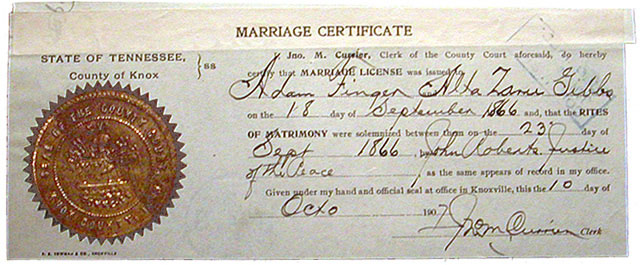 MARRIAGE CERTIFICATE
STATE OF TENNESSEE,
County of Knox
ss
I, Jno. M. Currier, Clerk of the County Court aforesaid, do hereby
certify that MARRIAGE LICENSE was issued to
Adam Finger Alba Zani Gibbs
on the 18 day of September 1866 and, that the RITES
OF MATRIMONY were solemnized between them on the 23 day of
Sept 1866 by John Roberts Justice
of the Peace as the same appears of record in my office.
Given under my hand and official seal at office in Knoxville, this the 10 day of
Octo 1907 Jno M Currier Clerk
SEAL OF THE COUNTY COURT
KNOX COUNTY